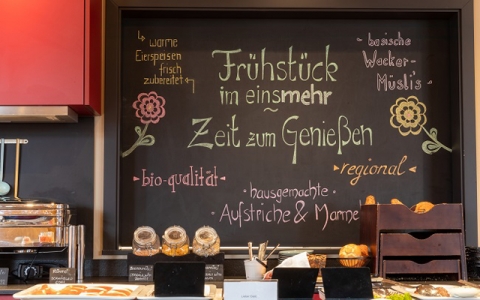 warme
Eierspeisen
frisch
zubereitet
Frühstück
im einsmehr
~
Zeit zum Genießen
- basische
Wacker-
Müsli's -
bio-qualität
regional
· hausgemachte ·
Aufstriche & Marme